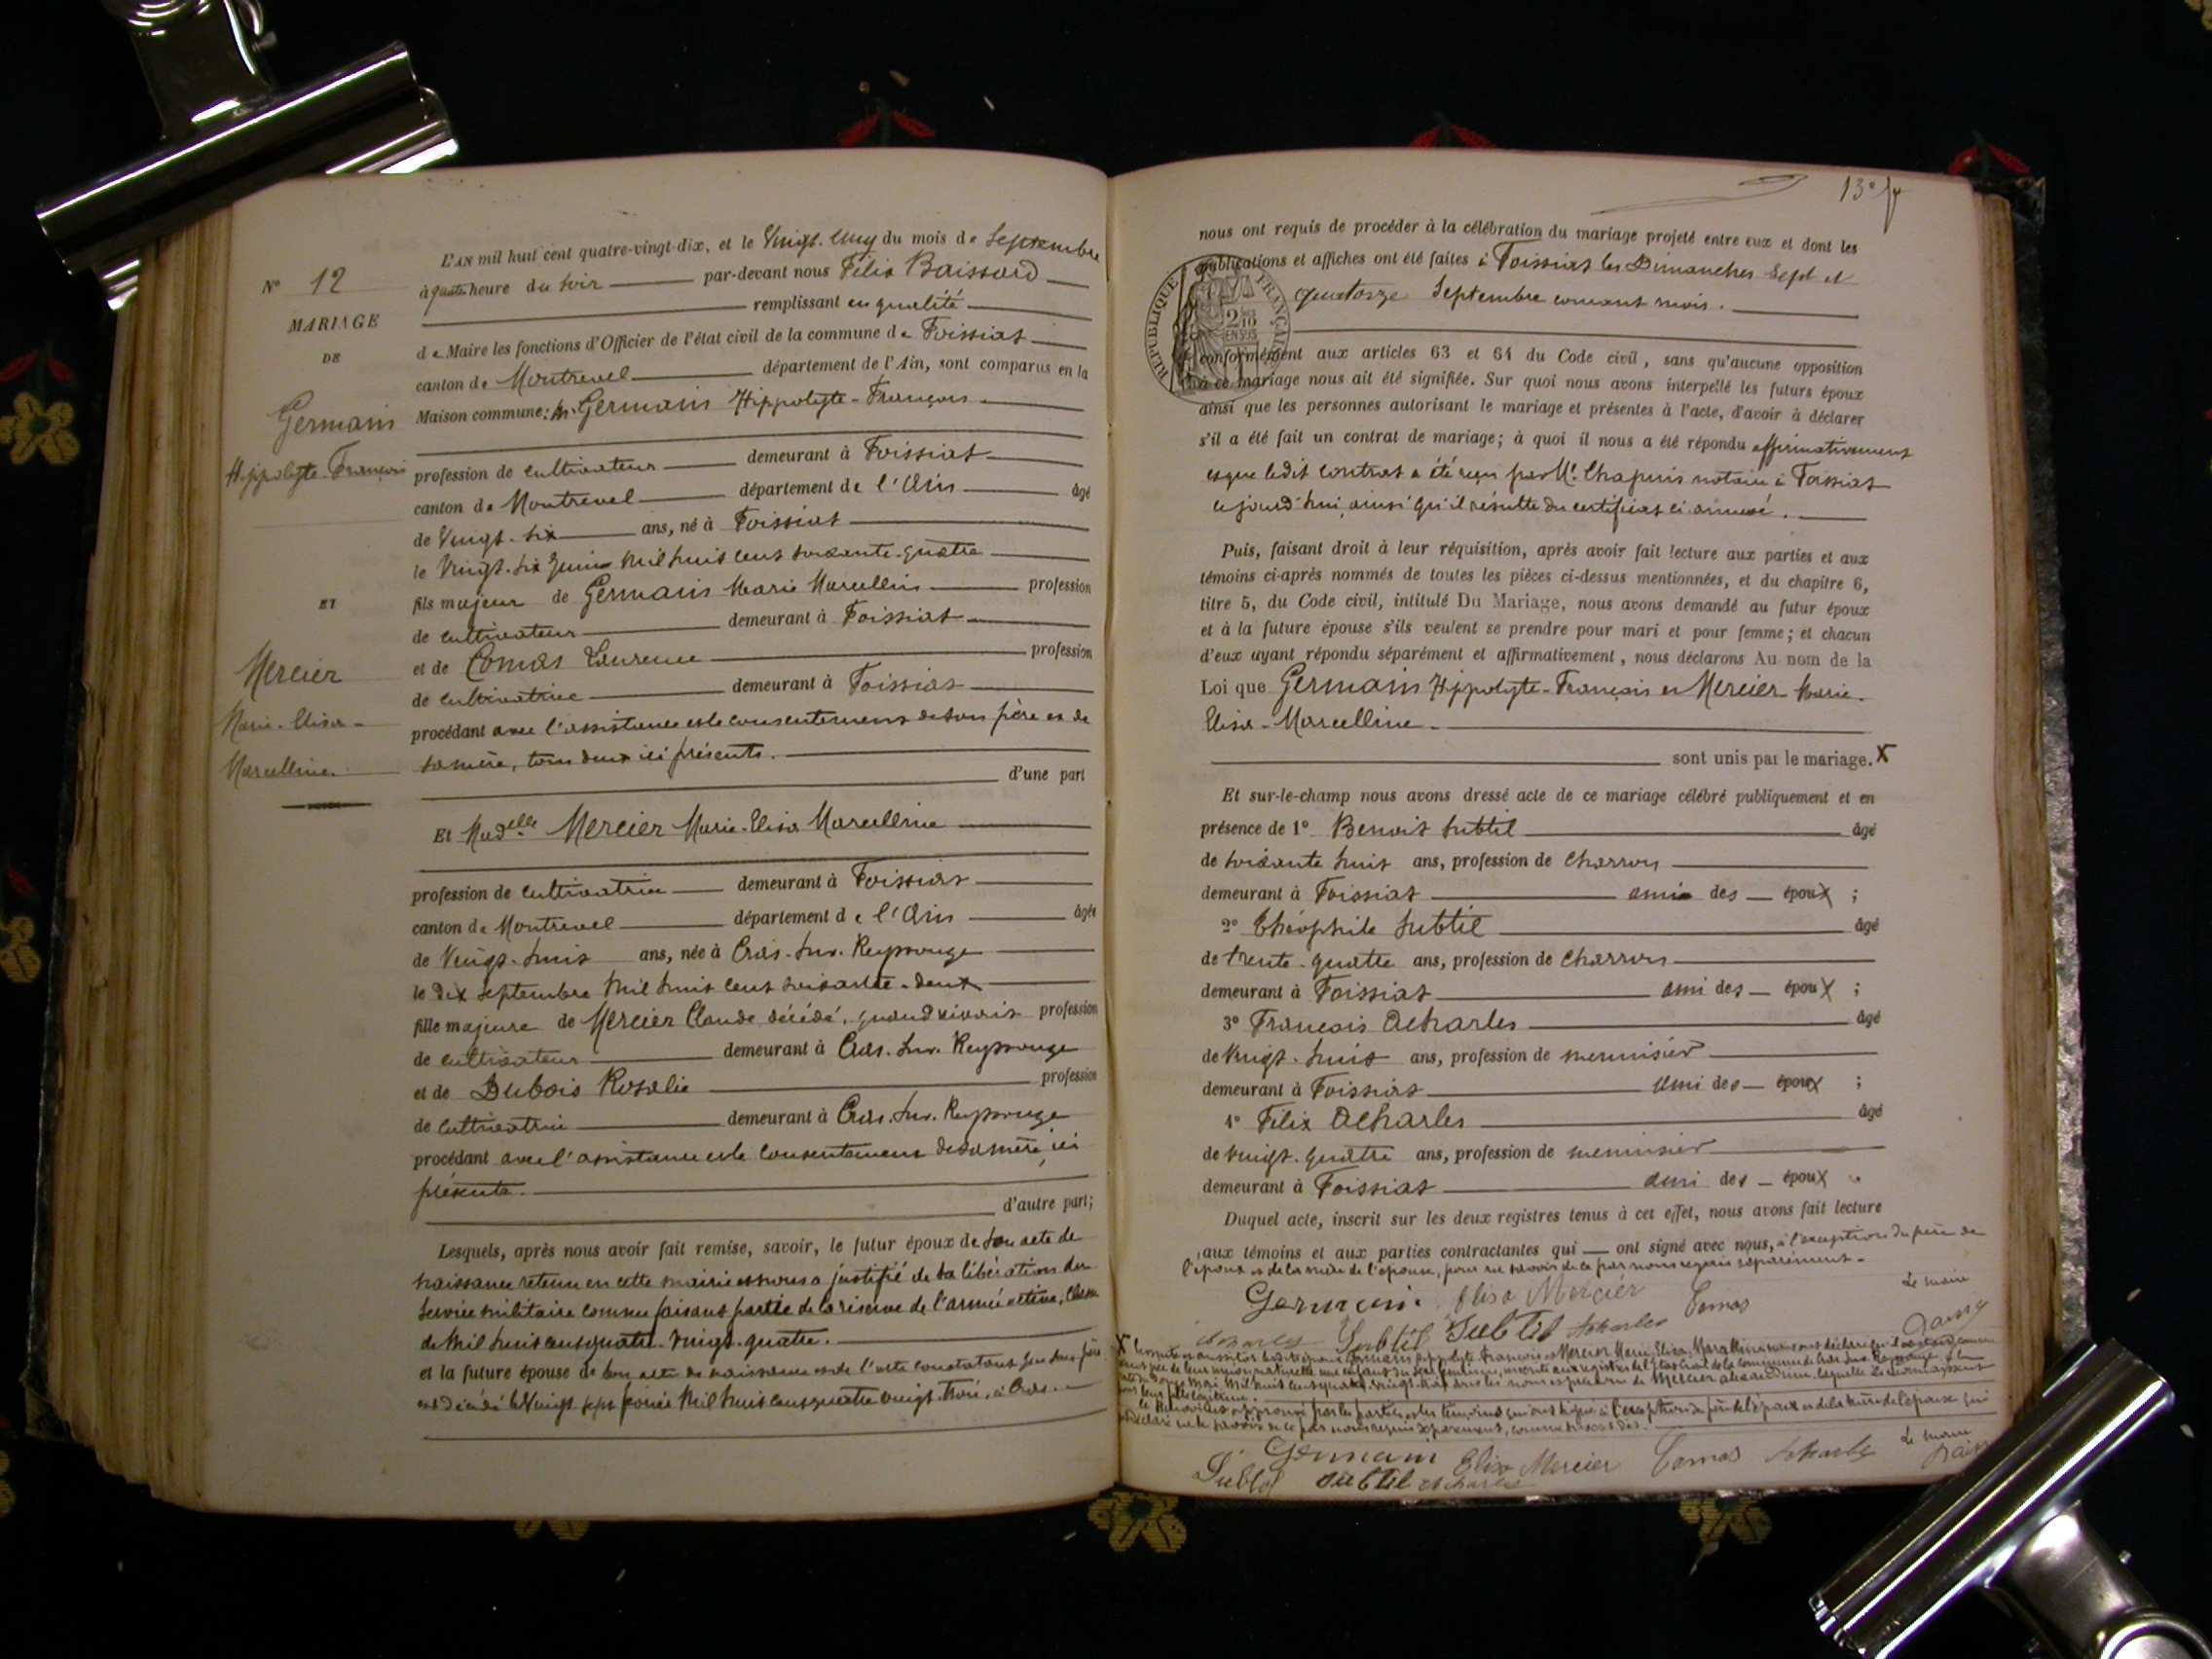 N° 12
MARIAGE
DE
Germain
Hippolyte-François
ET
Mercier
Marie-Elisa-
Marcelline.
L'AN mil huit cent quatre-vingt-dix, et le Vingt-cinq du mois de Septembre
à quatre heure du soir par-devant nous Félix Baissard
remplissant en qualité
de Maire les fonctions d'Officier de l'état civil de la commune de Foissiat
canton de Montrevel département de l'Ain, sont comparus en la
Maison commune: Mr Germain Hippolyte-François.
profession de cultivateur demeurant à Foissiat
canton de Montrevel département de l'Ain âgé
de Vingt-six ans, né à Foissiat
le Vingt-six Juin mil huit cent soixante-quatre
fils majeur de Germain Marie Marcellin profession
de cultivateur demeurant à Foissiat
et de Comas Laurence profession
de cultivatrice demeurant à Foissiat
procédant avec l'assistance et le consentement de son père et de
sa mère, tous deux ici présents.
d'une part
Et Madelle Mercier Marie-Elisa Marcelline
profession de cultivatrice demeurant à Foissiat
canton de Montrevel département de l'Ain âgée
de Vingt-huit ans, née à Cras-Sur-Reyssouze
le dix septembre mil huit cent soixante-deux
fille majeure de Mercier Claude décédé, quand vivait profession
de cultivateur demeurant à Cras-Sur-Reyssouze
et de Dubois Rosalie profession
de cultivatrice demeurant à Cras-Sur-Reyssouze
procédant avec l'assistance et le consentement de sa mère, ici
présente.
d'autre part;
Lesquels, après nous avoir fait remise, savoir, le futur époux de son acte de
naissance retenu en cette mairie et nous a justifié de sa libération du
service militaire comme faisant partie de la réserve de l'armée active, classe
de mil huit cent quatre-vingt-quatre.
et la future épouse de son acte de naissance et de l'acte constatant que son père
est décédé le Vingt sept février mil huit cent quatre vingt-trois, à Cras.
13e f
nous ont requis de procéder à la célébration du mariage projeté entre eux et dont les
publications et affiches ont été faites à Foissiat les Dimanches Sept et
quatorze Septembre courant mois.
RÉPUBLIQUE FRANÇAISE
2/10 EN SUS
conformément aux articles 63 et 64 du Code civil, sans qu'aucune opposition
à ce mariage nous ait été signifiée. Sur quoi nous avons interpellé les futurs époux
ainsi que les personnes autorisant le mariage et présentes à l'acte, d'avoir à déclarer
s'il a été fait un contrat de mariage; à quoi il nous a été répondu affirmativement
et que ledit contrat a été reçu par Me Chapuis notaire à Foissiat
ce jourd'hui, ainsi qu'il résulte du certificat ci-annexé.
Puis, faisant droit à leur réquisition, après avoir fait lecture aux parties et aux
témoins ci-après nommés de toutes les pièces ci-dessus mentionnées, et du chapitre 6,
titre 5, du Code civil, intitulé Du Mariage, nous avons demandé au futur époux
et à la future épouse s'ils veulent se prendre pour mari et pour femme; et chacun
d'eux ayant répondu séparément et affirmativement, nous déclarons Au nom de la
Loi que Germain Hippolyte-François et Mercier Marie-
Elisa-Marcelline.
sont unis par le mariage. X
Et sur-le-champ nous avons dressé acte de ce mariage célébré publiquement et en
présence de 1° Benoit Subtil âgé
de soixante huit ans, profession de charron
demeurant à Foissiat ami des époux ;
2° Théophile Subtil âgé
de trente-quatre ans, profession de charron
demeurant à Foissiat ami des époux ;
3° François Acharles âgé
de vingt-huit ans, profession de menuisier
demeurant à Foissiat ami des époux ;
4° Félix Acharles âgé
de vingt-quatre ans, profession de menuisier
demeurant à Foissiat ami des époux .
Duquel acte, inscrit sur les deux registres tenus à cet effet, nous avons fait lecture
aux témoins et aux parties contractantes qui ont signé avec nous, à l'exception du père de
l'époux et de la mère de l'épouse, pour ne savoir de ce par nous requis séparément.
Germain Elisa Mercier Comas Le maire
Acharles Subtil Subtil Acharles
X
Germain Hippolyte-François et Mercier Marie-Elisa-Marcelline nous ont déclaré qu'
de leur union naturelle une enfant du sexe féminin, inscrite aux registres de l'état civil de la commune de Cras-Sur-Reyssouze
mai mil huit cent quatre-vingt sous les noms et prénoms de Mercier laquelle
pour leur fille légitime.
approuvé par les parties et les témoins qui ont signé à l'exception du père de l'époux et de la mère de l'épouse qui
ont déclaré ne le savoir de ce par nous requis séparément, comme il est dit.
Germain Elisa Mercier Comas Acharles Le maire
Subtil Subtil Acharles